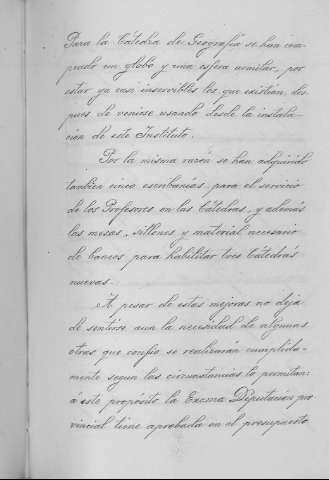 Para la Cátedra de Geografía se han com-
prado un globo y una esfera armilar, por
estar ya casi inservibles los que existían, des-
pues de venirse usando desde la instala-
ción de este Instituto.
Por la misma razón se han adquirido
tambien cinco escribanías para el servicio
de los Profesores en las Cátedras, y además
las mesas, sillones y material necesario
de bancos para habilitar tres Cátedras
nuevas.
Á pesar de estas mejoras no deja
de sentirse aun la necesidad de algunas
otras que confío se realizarán cumplida-
mente segun las circunstancias lo permitan:
á este propósito la Excma Diputación pro
vincial tiene aprobada en el presupuesto